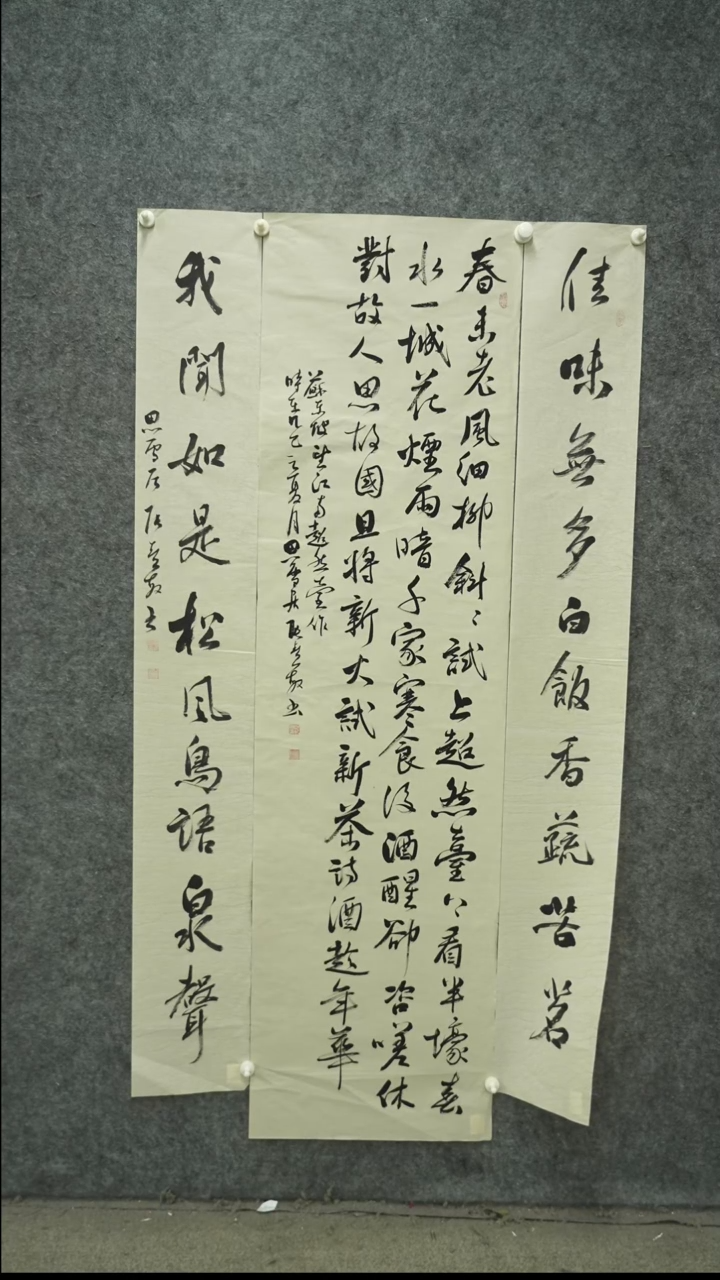 佳味無多白飯香蔬苦茗
春未老風細柳斜斜試上超然臺上看半壕春
水一城花煙雨暗千家寒食後酒醒卻咨嗟休
對故人思故國且將新火試新茶詩酒趁年華
蘇東坡望江南超然臺作
時在乙巳夏月思雪居
我聞如是松風鳥語泉聲
思雪居